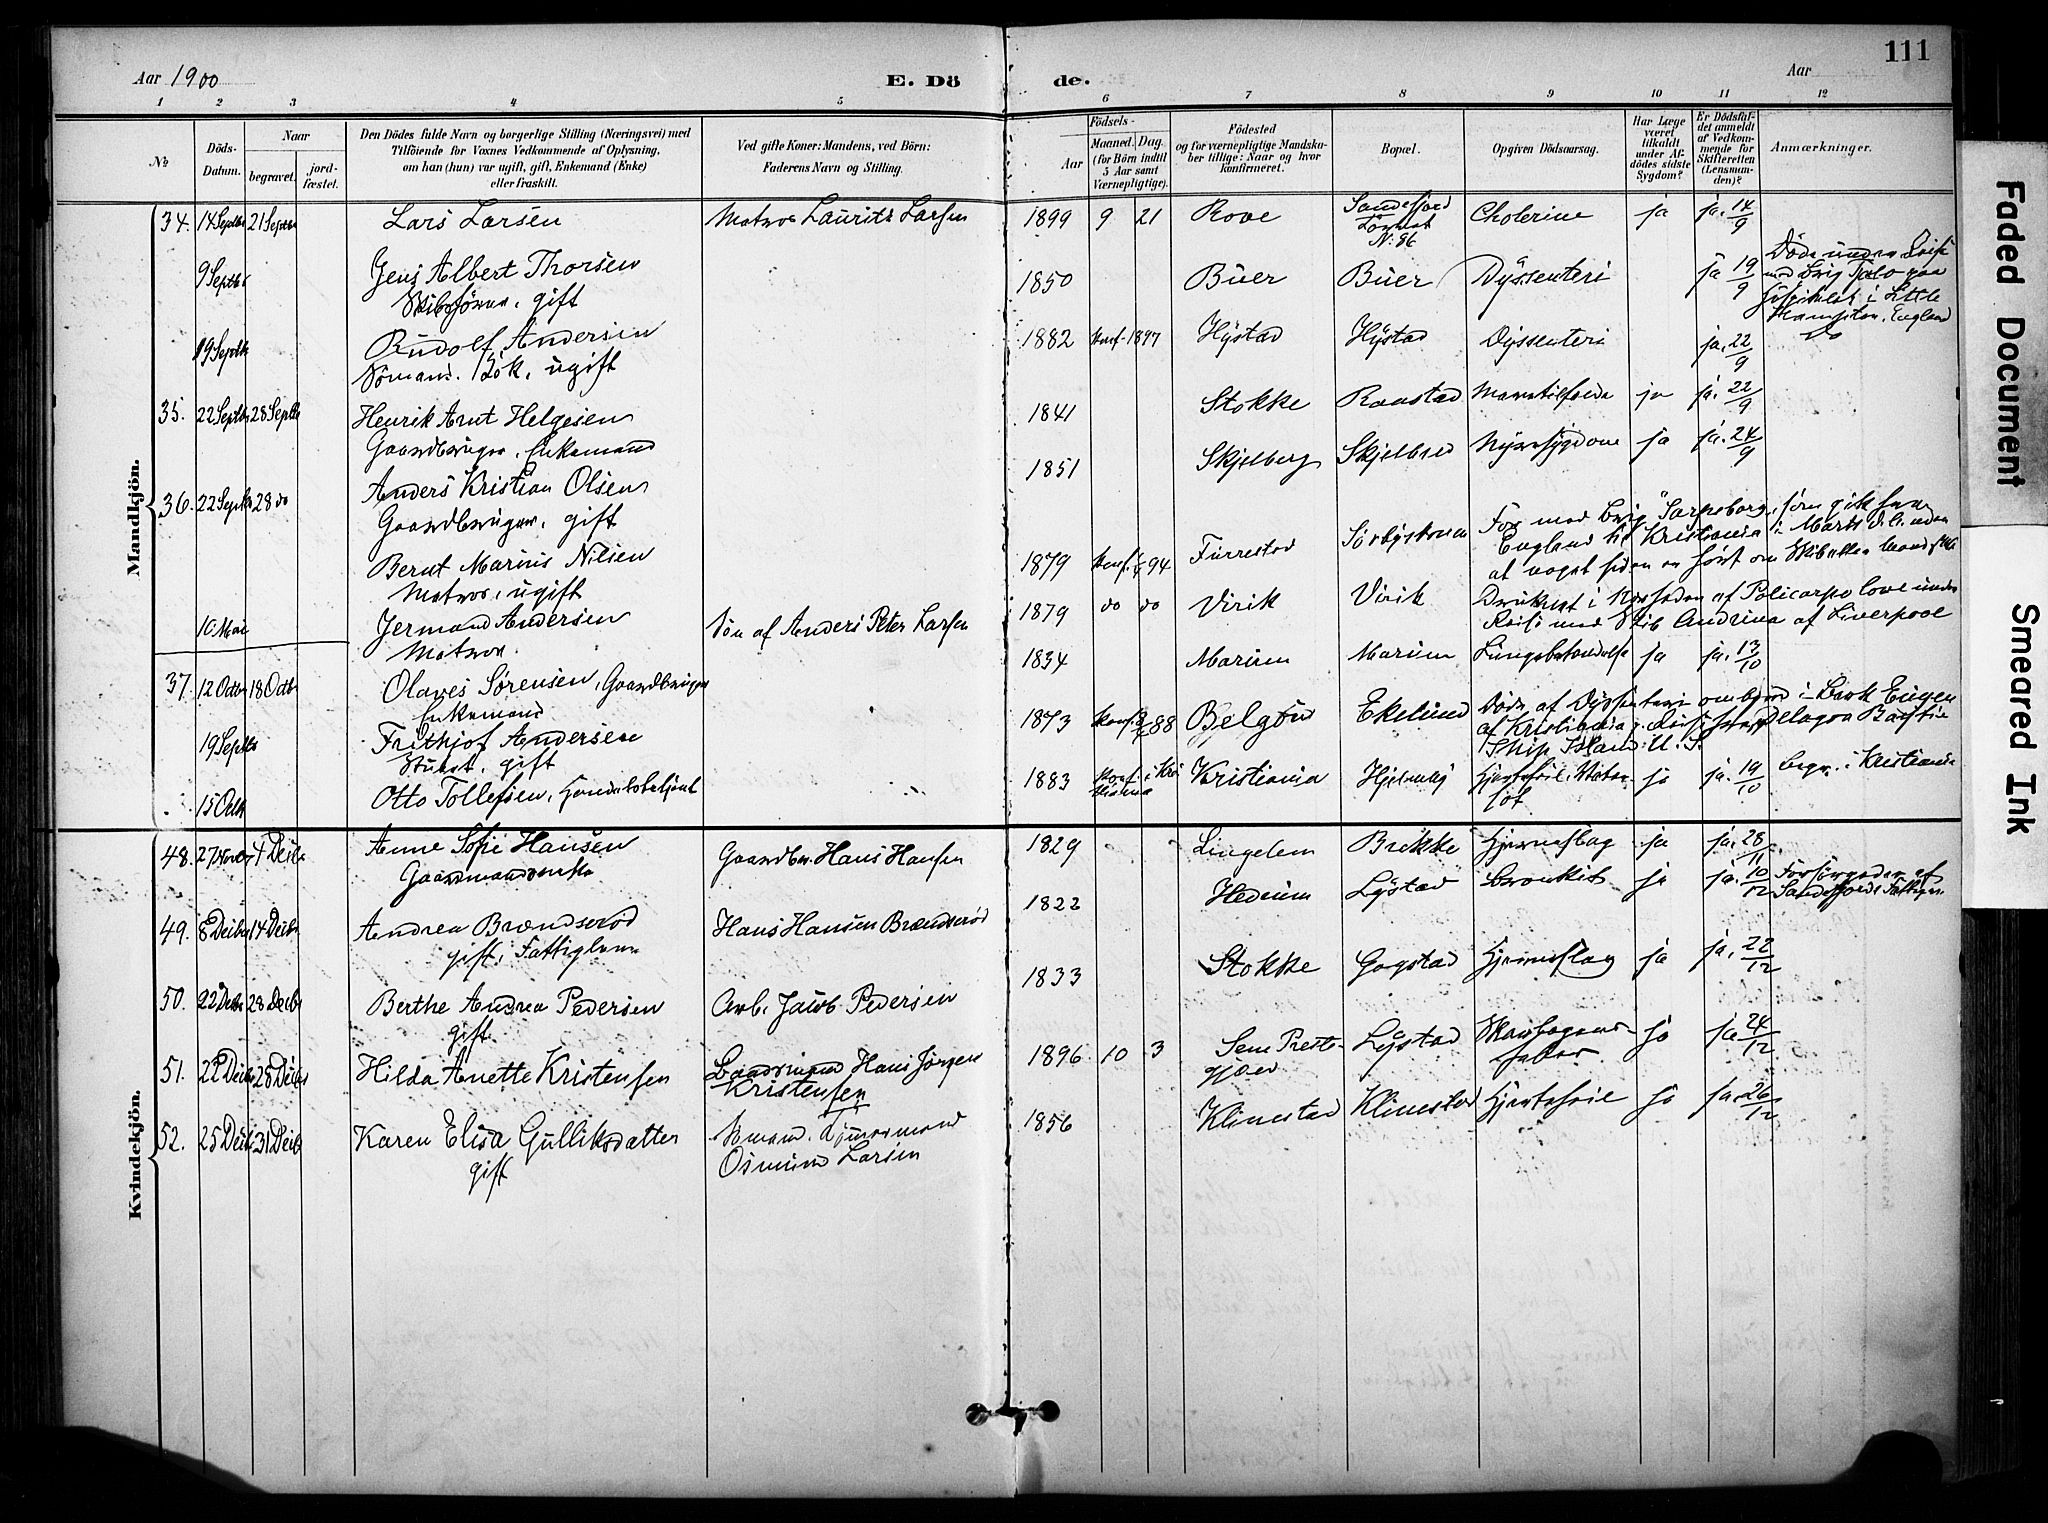 111
Aar 1900
E. Dö de.
Aar
1 2 3 4 5 6 7 8 9 10 11 12
No
Döds-
Datum.
Naar
begravet.
jord-
fæstet.
Den Dödes fulde Navn og borgerlige Stilling (Næringsvei) med
Tilföiende for Voxnes Vedkommende af Oplysning,
om han (hun) var ugift, gift, Enkemand (Enke)
eller fraskilt.
Ved gifte Koner: Mandens, ved Börn:
Faderens Navn og Stilling.
Födsels-
Aar
Maaned.
Dag.
(for Börn indtil
5 Aar samt
Værnepligtige).
Födested
og for værnepligtige Mandska-
ber tillige: Naar og hvor
konfirmeret.
Bopæl.
Opgiven Dödsaarsag.
Har Læge
været
tilkaldt
under Af-
dödes sidste
Sygdom?
Er Dödsfal-
det anmeldt
af Vedkom-
mende for
Skifteretten
(Lensman-
den)?
Anmærkninger.
Mandkjön.
34. 14 Septbr 21 Septbr Lars Larsen Matros Lauritz Larsen 1899 9 21 Rove Sandefjord Cholerine ja ja. 14/9
N: 86
9 Septbr Jens Albert Thorsen 1850 Buer Buer Dyssenteri ja 19/9 Döde under Reise
Skibsförer, gift med Brig Tjalo paa
Hospitalet i Little
Hampton, England
19 Septbr Rudolf Andersen 1882 Konf. 1897 Hystad Hystad Dyssenteri ja. 22/9 Do
Sömand. Kok, ugift
35. 22 Septbr 28 Septbr Henrik Arnt Helgesen 1841 Stokke Raastad ja ja. 22/9
Gaardbruger, Enkemand
36. 22 Septbr 28 do Anders Kristian Olsen 1851 Skjelberg Skjelbred Nyresygdom ja ja. 24/9
Gaardbruger, gift
Bernt Marius Nilsen 1879 Konf. 94 Furrestad For med Brig "Sarpsborg", som gik fra
Matros, ugift England til Kristiania i Marts uden
at noget siden er hört om Skib eller Mandskab
10 Mai Jermand Andersen Sön af Anders Peter Larsen 1879 do do Virik Virik Druknet i af Policarpo love under
Matros Reise med Skib Andrina af Liverpool
37. 12 Octbr 18 Octbr Olaves Sörensen, Gaardbruger 1834 Marum Marum Lungebetændelse ja ja. 13/10
Enkemand
19 Septbr Frithjof Andersen 1873 Konf. 88 Ekelund Döde af Dyssenteri ombord i Bark Eugen
gift af Kristiania p. Reise fra Delagoa Bay til
Ship Island U. S.
15 Octb Otto Tollefsen, 1883 Konf. i Kri- Kristiania Hjertefeil. ja ja. 19/10 begr. i Kristiania
stiania
Kvindekjön.
48. 27 Novbr 4 Decbr Anne Sofie Hansen Gaardbr. Hans Hansen 1829 Lingelem Brekke Hjerneslag ja ja. 28/11
Gaardmandsenke
49. 8 Decbr 14 Decbr Andrea Brændseröd Hans Hansen Brændseröd 1822 Hedrum Lystad Bronkit ja ja. 10/12 Forsörgedes af
gift, Fattiglem Sandefjords Fattigv.
50. 22 Decbr 28 Decbr Berthe Andrea Pedersen Arb. Jacob Pedersen 1833 Stokke Gogstad Hjerneslag ja ja. 22/12
gift.
51. 22 Decbr 28 Decbr Hilda Anette Kristensen Hans Jörgen 1896 10 3 Sem Preste- Lystad Skarlagens- ja ja 24/12
Kristensen gjæld feber
52. 25 Decbr 31 Decbr Karen Elisa Gulliksdatter Sömand. 1856 Klinestad Klinestad Hjertefeil ja ja. 26/12
gift Osmund Larsen
Faded Document
Smeared Ink